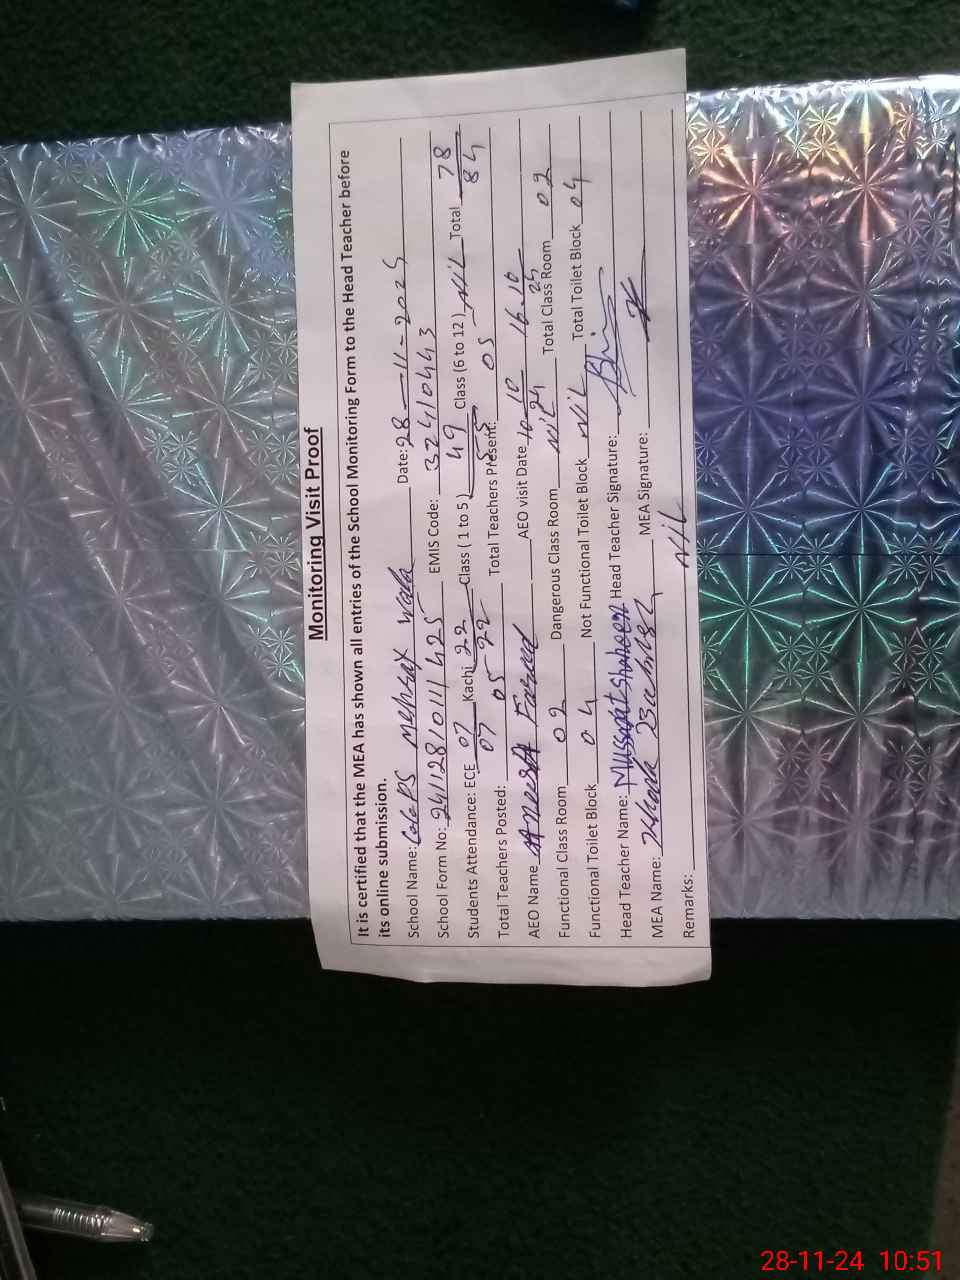 Monitoring Visit Proof
It is certified that the MEA has shown all entries of the School Monitoring Form to the Head Teacher before
its online submission.
School Name: PS Mehrax wala Date: 28-11-2024
School Form No: EMIS Code: 32410443
Students Attendance: ECE 07/07 Kachi 22/22 Class ( 1 to 5) 49/55 Class (6 to 12) Nil Total 78/84
Total Teachers Posted: 05 Total Teachers Present: 05
AEO Name Fareed AEO visit Date 10-10-24 16-10-24
Functional Class Room 02 Dangerous Class Room Nil Total Class Room 02
Functional Toilet Block 04 Not Functional Toilet Block Nil Total Toilet Block 04
Head Teacher Name: Mussarat Shaheen Head Teacher Signature:
MEA Name: MEA Signature:
Remarks: Nil
28-11-24 10:51